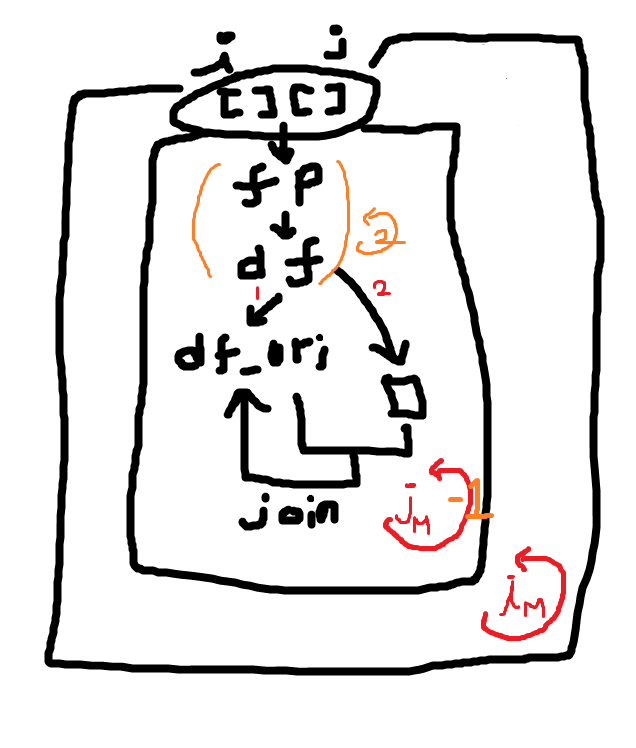 i j
[ ] [ ]
f p
d f
2
1
2
df_ori
join
jM
-1
iM